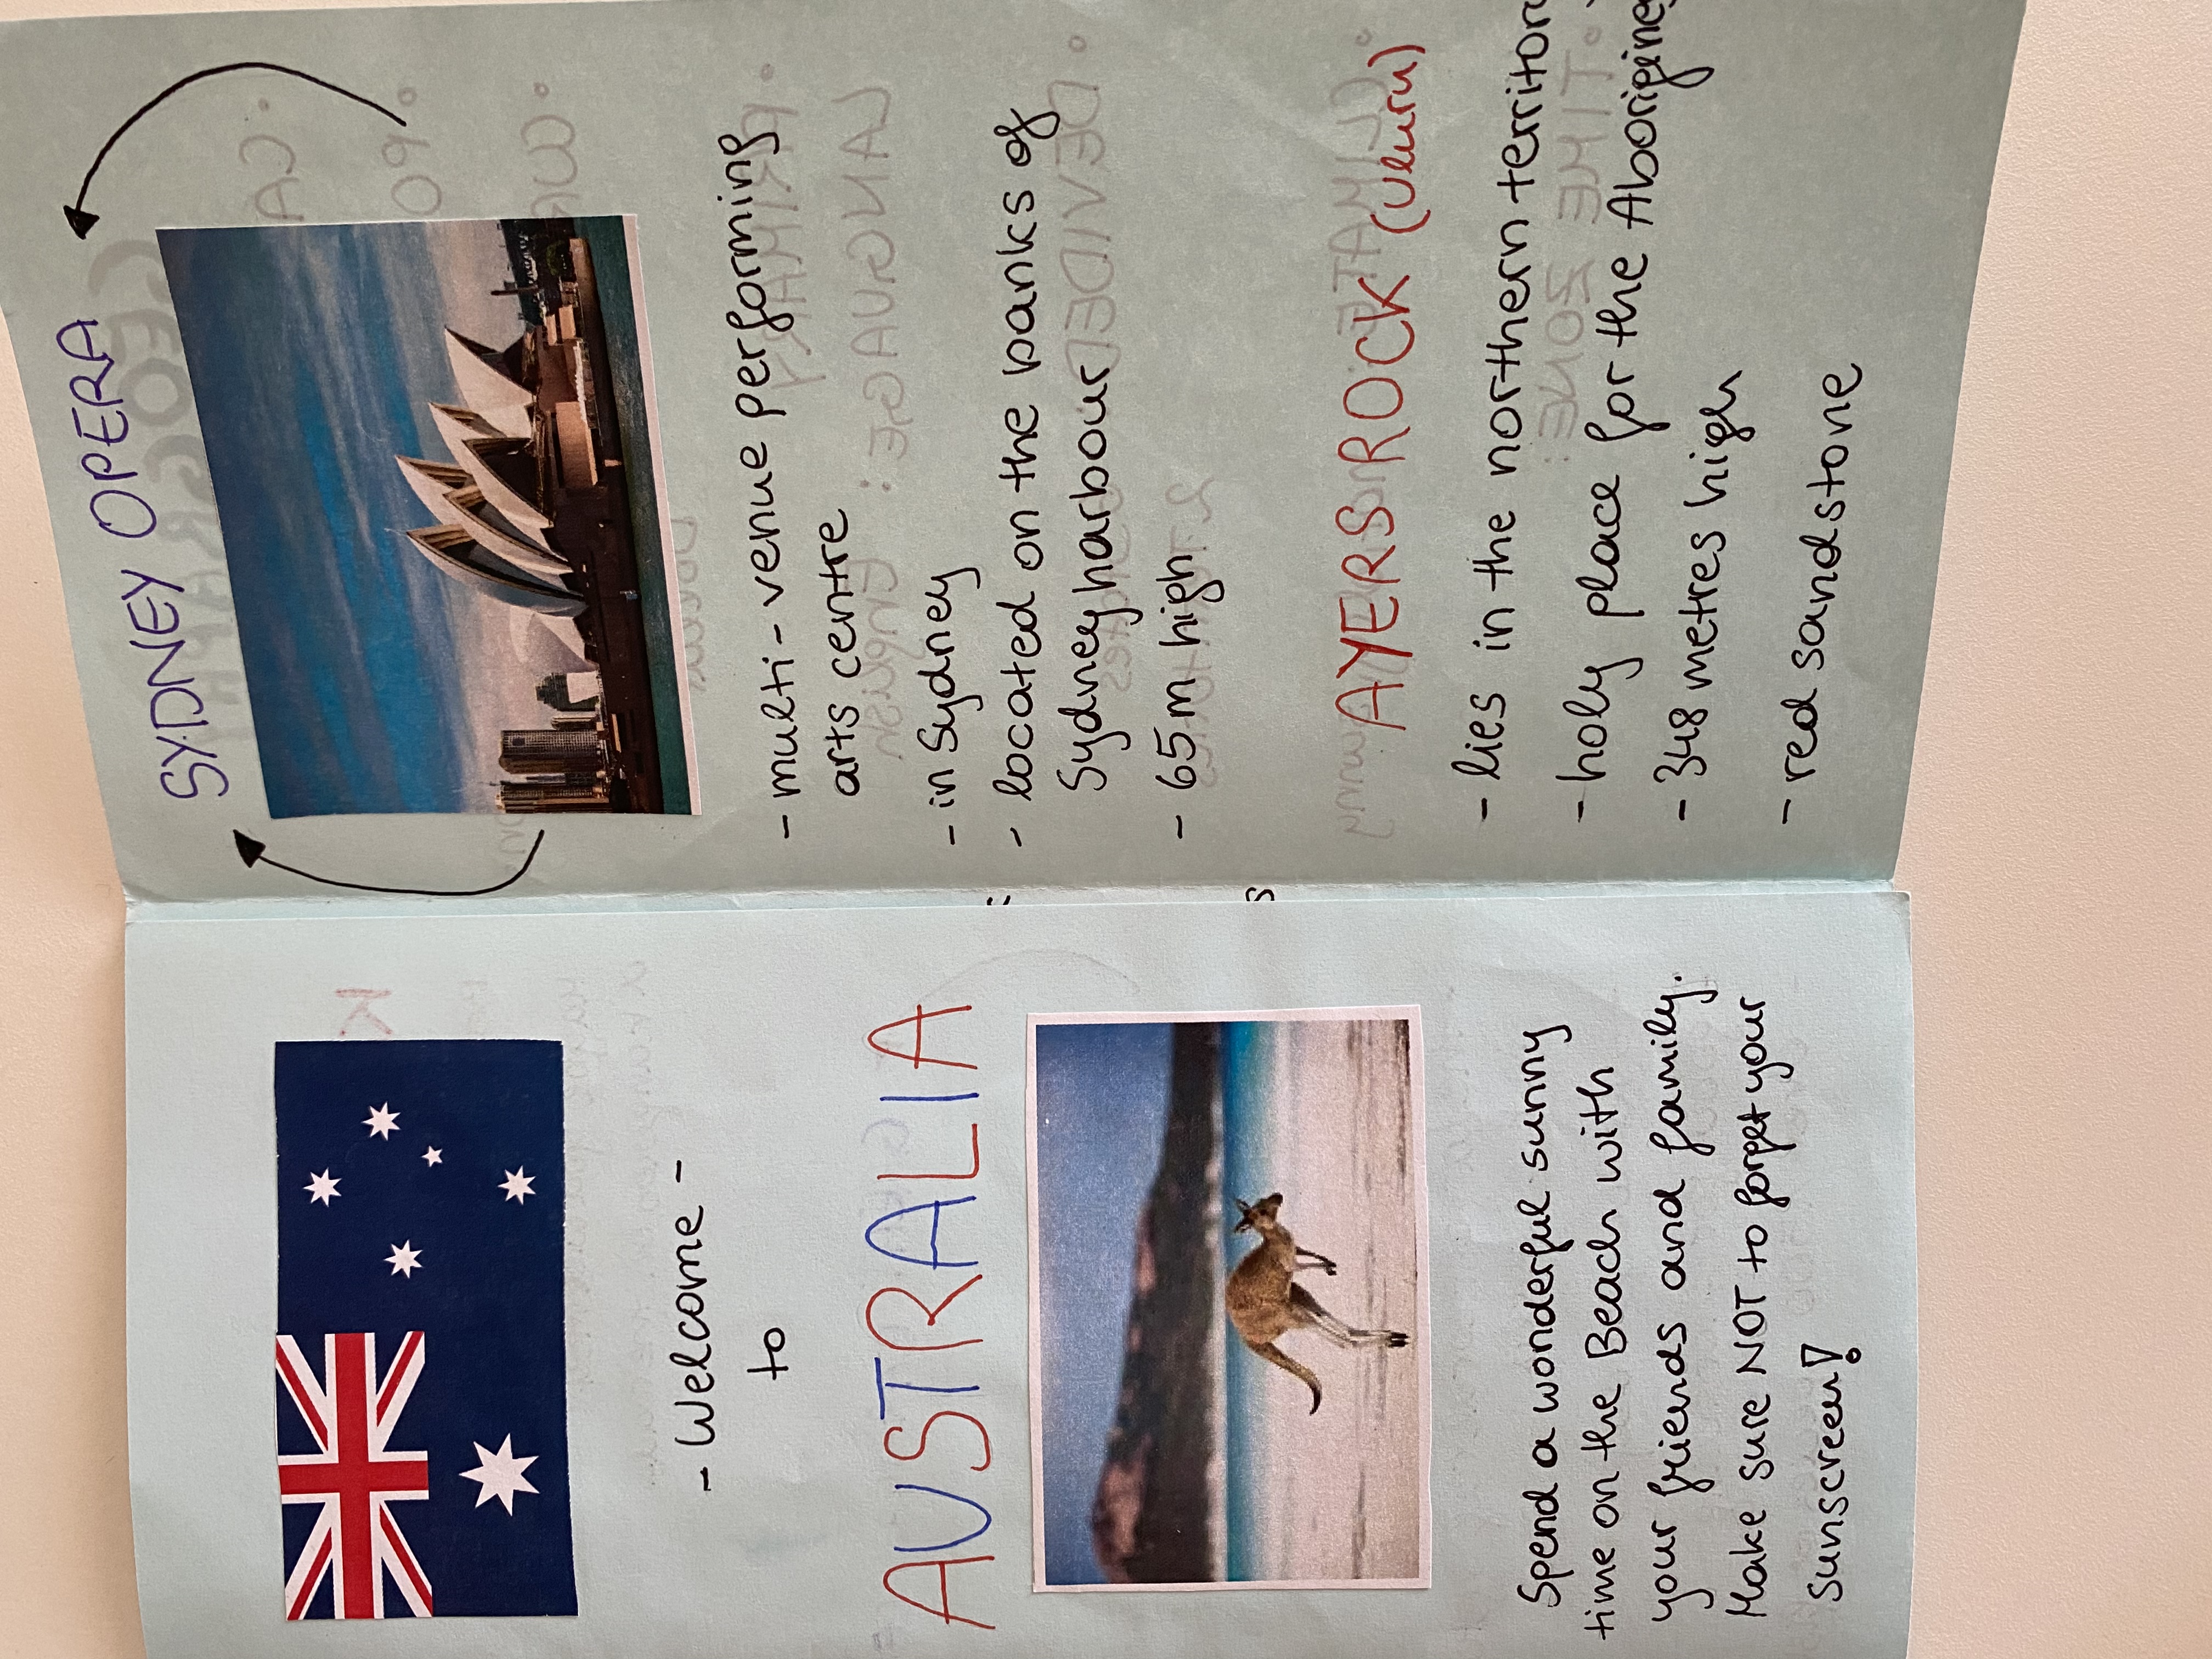 - Welcome -
to
AUSTRALIA
Spend a wonderful sunny
time on the Beach with
your friends and family.
Make sure NOT to forget your
sunscreen!
SYDNEY OPERA
- multi-venue performing
arts centre
- in Sydney
- located on the banks of
Sydney harbour
- 65m high
AYERS ROCK (Uluru)
- lies in the northern territory
- holy place for the Aborigines
- 348 metres high
- red sandstone